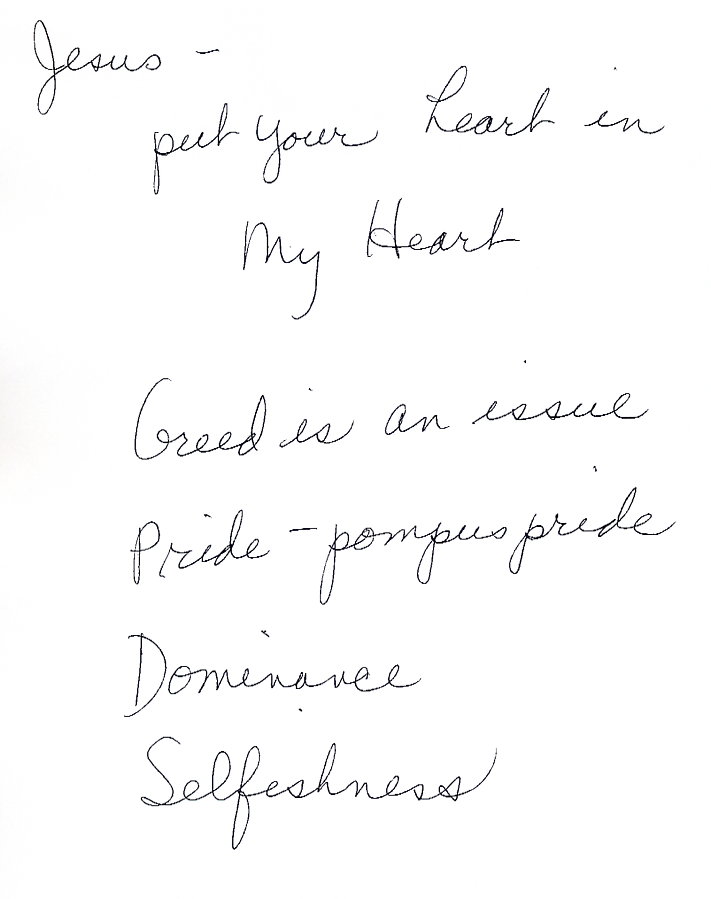 Jesus –
put your heart in
My Heart
Greed is an issue
Pride – pompus pride
Dominance
Selfishness